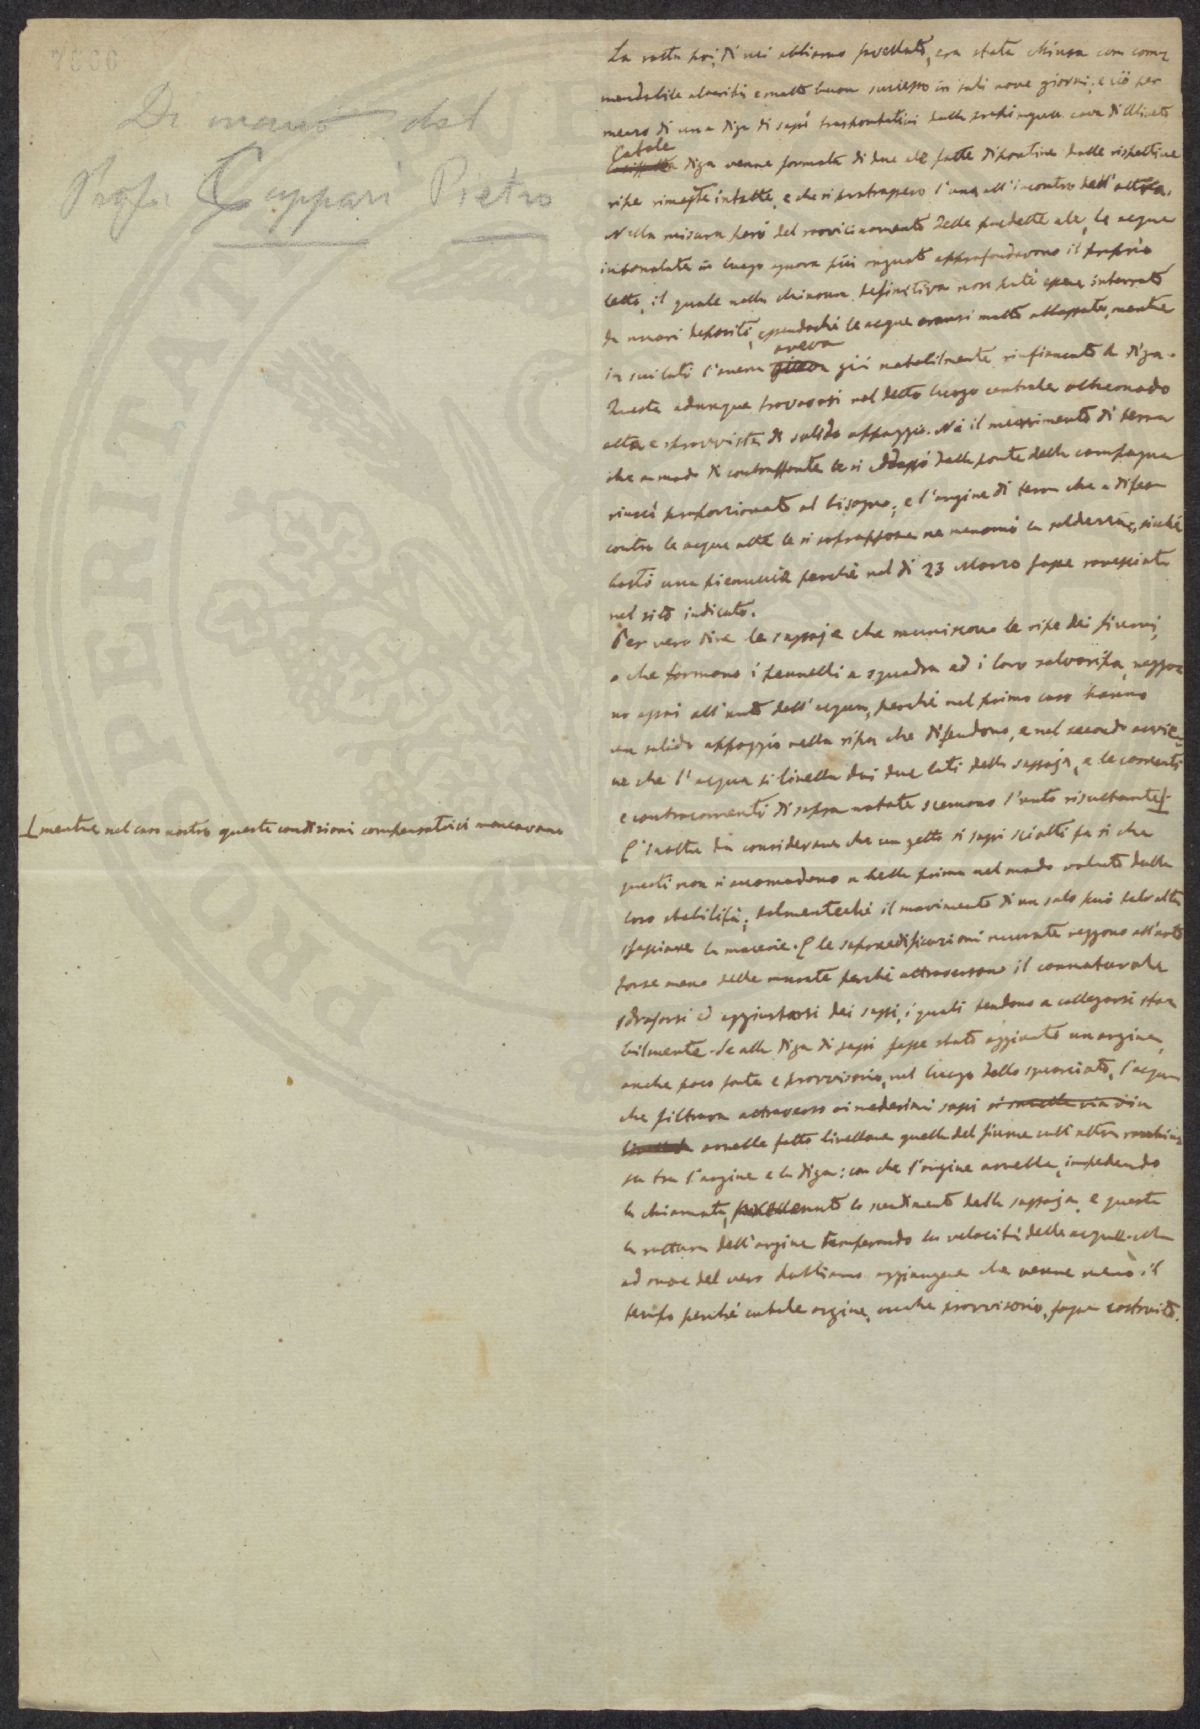 7000
Di mano del
Prof. Cuppari Pietro
La rotta poi, di cui abbiamo parlato, era stata chiusa con com=
mendabile alacrità e molto buon successo in soli nove giorni; e ciò per
mezzo di una diga di sassi trasportativi dalla propinqua cava di Uliveto
Cotale
diga venne formata di due ale fatte dipartire dalle rispettive
ripe rimaste intatte, e che si protrassero l'una all'incontro dell'altra.
Nella misura però del ravvicinamento delle predette ale, le acque
incanalate in luogo ognora più angusto approfondavano il proprio
letto, il quale nella chiusura definitiva non potè essere interrato
da nuovi depositi, essendochè le acque eransi molto abbassate, mentre
in sui lati l'arena aveva già notabilmente rinfiancato la diga.
Questa adunque trovavasi nel detto luogo centrale oltremodo
alta e sprovvista di solido appoggio. Nè il muricimento di terra
che a modo di contrafforte le si addossò dalla parte della campagna
riuscì proporzionato al bisogno; e l'argine di terra che a difesa
contro le acque alte le si soprappose ne menomò la saldezza, sicchè
bastò una pienuccia perchè nel dì 23 Marzo fosse rovesciata
nel sito indicato.
Per vero dire le sassaje che muniscono le ripe dei fiumi,
o che formano i pennelli a squadra ed i loro salvaripa, reggo=
no assai all'urto dell'acqua, perchè nel primo caso hanno
un solido appoggio nella ripa che difendono, e nel secondo avvie=
ne che l'acqua si livella dai due lati della sassaja, e le correnti
e controcorrenti di sopra notate scemano l'urto risultante
mentre nel caso nostro queste condizioni compensatrici mancavano
È inoltre da considerare che un getto di sassi sciolti fa sì che
questi non si accomodano a bella prima nel modo voluto dalla
loro stabilità, talmentechè il movimento di un solo può talvolta
sfasciare la macerie. E le sopraedificazioni murate reggono all'urto
forse meno delle murate perchè attraversano il connaturale
sdrajarsi ed aggiustarsi dei sassi, i quali tendono a collegarsi sta=
bilmente. Se alla diga di sassi fosse stato aggiunto un argine,
anche poco forte e provvisorio, nel luogo dello squarciato, l'acqua
che filtrava attraverso ai medesimi sassi si sarebbe via via
avrebbe fatto livellare quella del fiume coll'altra racchiu=
sa tra l'argine e la diga: con che l'argine avrebbe, impedendo
la chiamata, trattenuto lo scendimento della sassaja, e questa
la rottura dell'argine temperando la velocità delle acque. Ma
ad onor del vero dobbiamo aggiungere che venne meno il
tempo perchè cotale argine, anche provvisorio, fosse costruito.